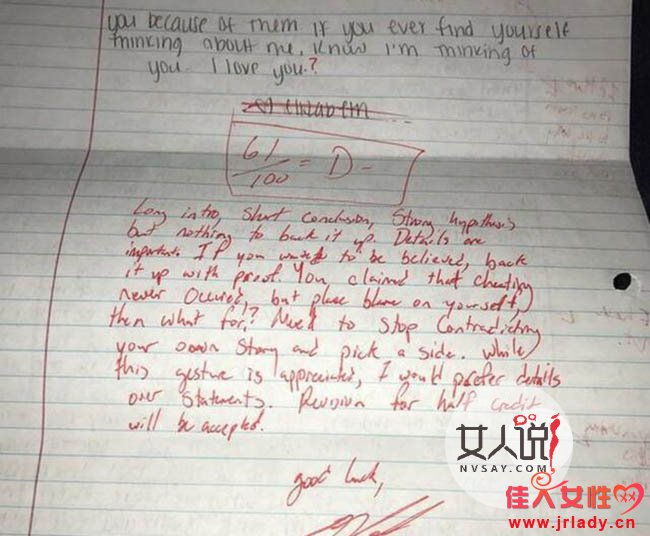 you because of them if you ever find yourself
thinking about me, know I'm thinking of
you. I love you.?
61/100 = D-
Long intro, Short conclusion, Strong hypothesis
but nothing to back it up. Details are
important. If you want to be believed, back
it up with proof. You claimed that cheating
never occured, but place blame on yourself,
then what for,? Need to stop contradicting
your own story and pick a side. While
this gesture is appreciated, I would prefer details
over statements. Revision for half credit
will be accepted.
good luck,
女人说
NVSAY.COM
佳人女性 XX
www.jrlady.cn